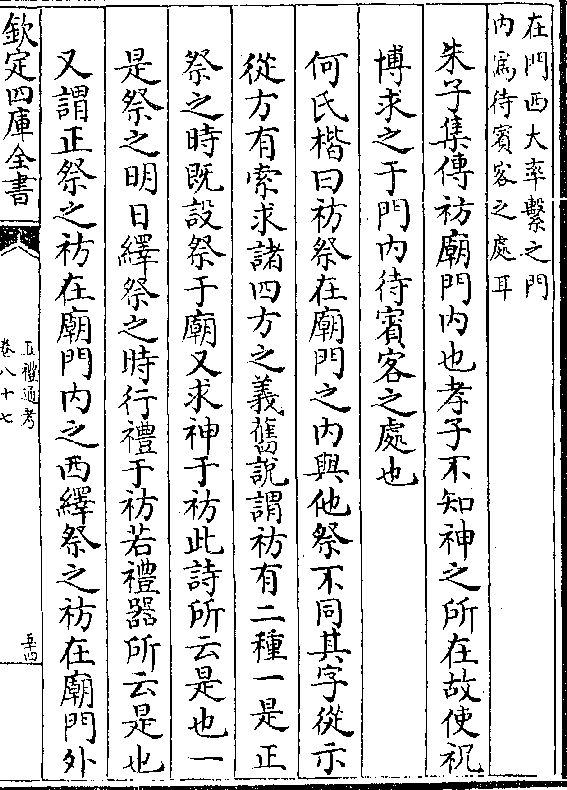 在門西大率繫之門
內爲待賓客之處耳
朱子集傳祊廟門內也孝子不知神之所在故使祝
博求之于門內待賓客之處也
何氏楷曰祊祭在廟門之內與他祭不同其字從示
從方有索求諸四方之義舊說謂祊有二種一是正
祭之時既設祭于廟又求神于祊此詩所云是也一
是祭之明日繹祭之時行禮于祊若禮器所云是也
又謂正祭之祊在廟門內之西繹祭之祊在廟門外
欽定四庫全書
五禮通考
卷八十七
五四